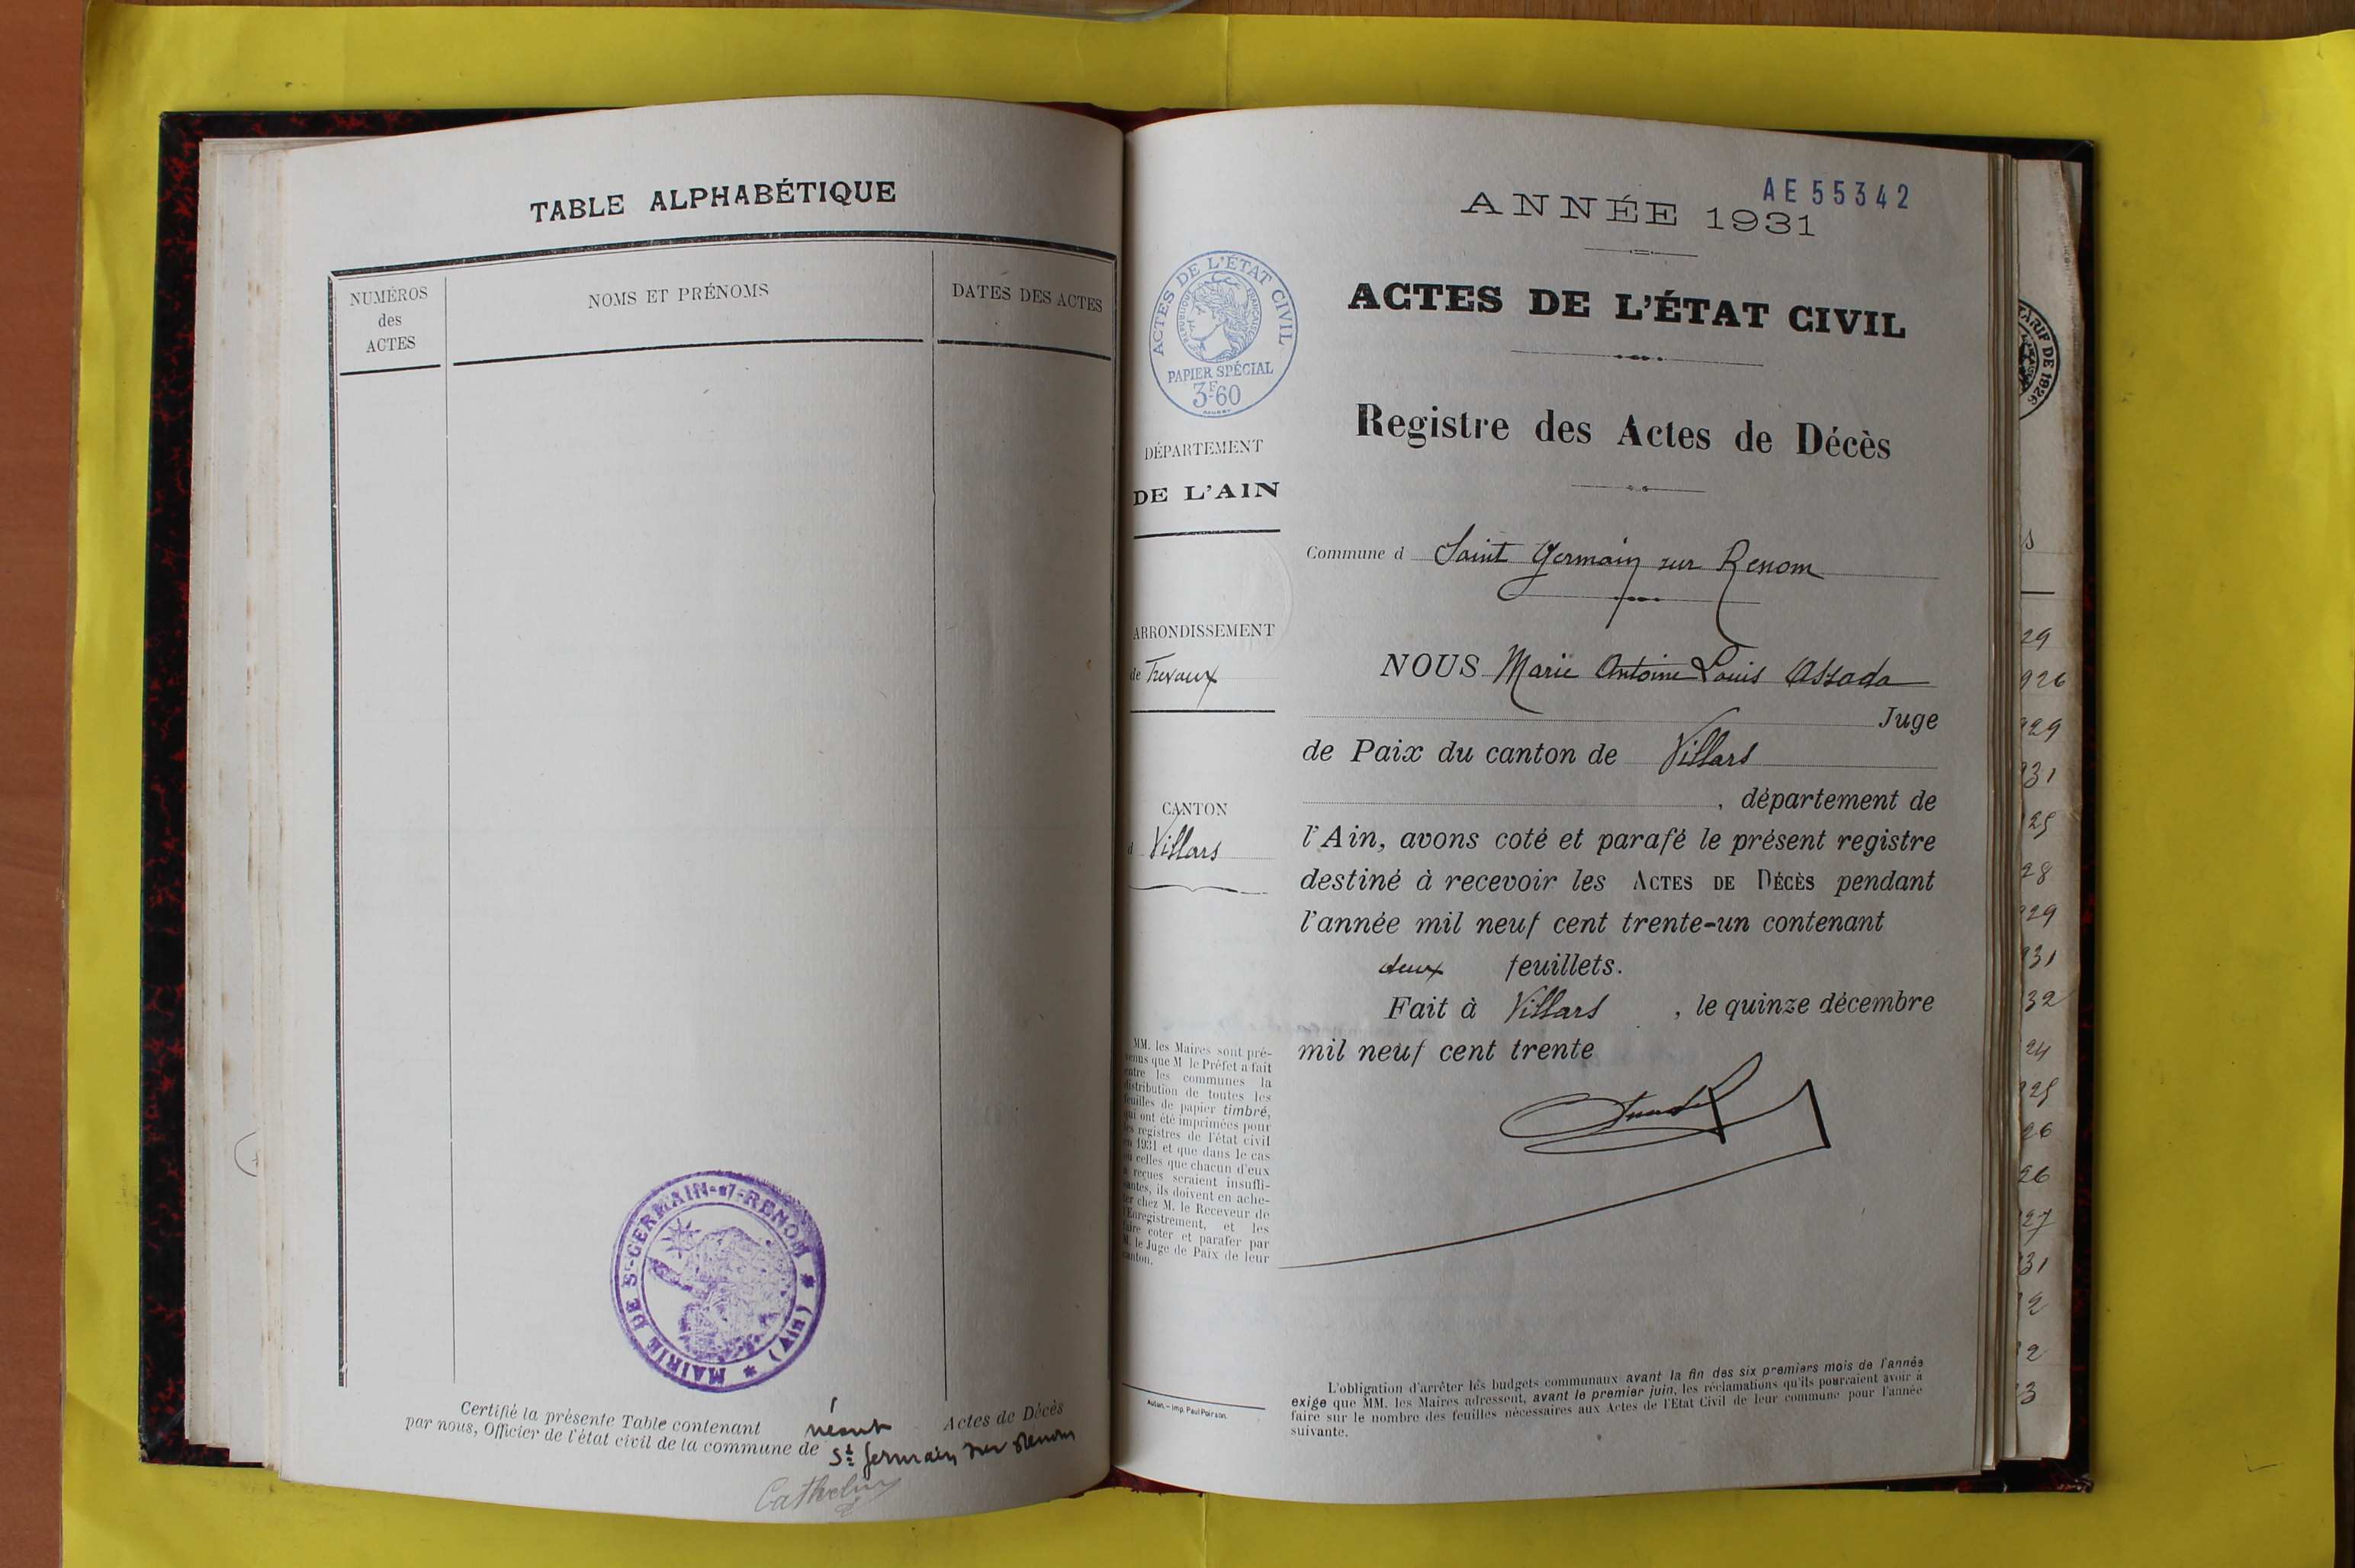 TABLE ALPHABÉTIQUE
NUMÉROS
des
ACTES
NOMS ET PRÉNOMS
DATES DES ACTES
MAIRIE DE St-GERMAIN-s/-RENOM * (Ain) *
Certifié la présente Table contenant néant Actes de Décès
par nous, Officier de l'état civil de la commune de St Germain sur Renom
AE55342
ANNÉE 1931
ACTES DE L'ÉTAT CIVIL
RÉPUBLIQUE FRANÇAISE
PAPIER SPÉCIAL
3F60
ACTES DE L'ÉTAT CIVIL
Registre des Actes de Décès
DÉPARTEMENT
DE L'AIN
Commune d Saint Germain sur Renom
ARRONDISSEMENT
de Trevoux
NOUS Marie Antoine Louis Assada
Juge
de Paix du canton de Villars
, département de
CANTON
d Villars
l'Ain, avons coté et parafé le présent registre
destiné à recevoir les ACTES DE DÉCÈS pendant
l'année mil neuf cent trente-un contenant
deux feuillets.
Fait à Villars , le quinze décembre
mil neuf cent trente
MM. les Maires sont pré-
venus que M le Préfet a fait
entre les communes la
distribution de toutes les
feuilles de papier timbré,
qui ont été imprimées pour
les registres de l'état civil
en 1931 et que dans le cas
où celles que chacun d'eux
a reçues seraient insuffi-
santes, ils doivent en ache-
ter chez M. le Receveur de
l'Enregistrement, et les
faire coter et parafer par
M. le Juge de Paix de leur
canton.
Autun. – Imp. Paul Poirson.
L'obligation d'arrêter les budgets communaux avant la fin des six premiers mois de l'année
exige que MM. les Maires adressent, avant le premier juin, les réclamations qu'ils pourraient avoir à
faire sur le nombre des feuilles nécessaires aux Actes de l'Etat Civil de leur commune pour l'année
suivante.
TARIF DE 1926
29
926
929
931
25
28
929
931
32
24
925
26
26
27
31
2
2
3